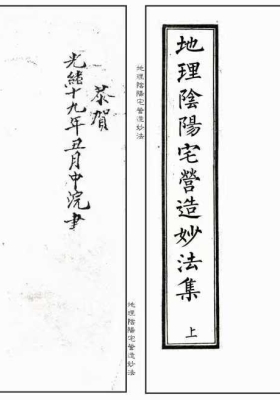 地理陰陽宅營造妙法集 上
地理陰陽宅營造妙法
恭賀
光緒十九年丑月中浣書
地理陰陽宅營造妙法